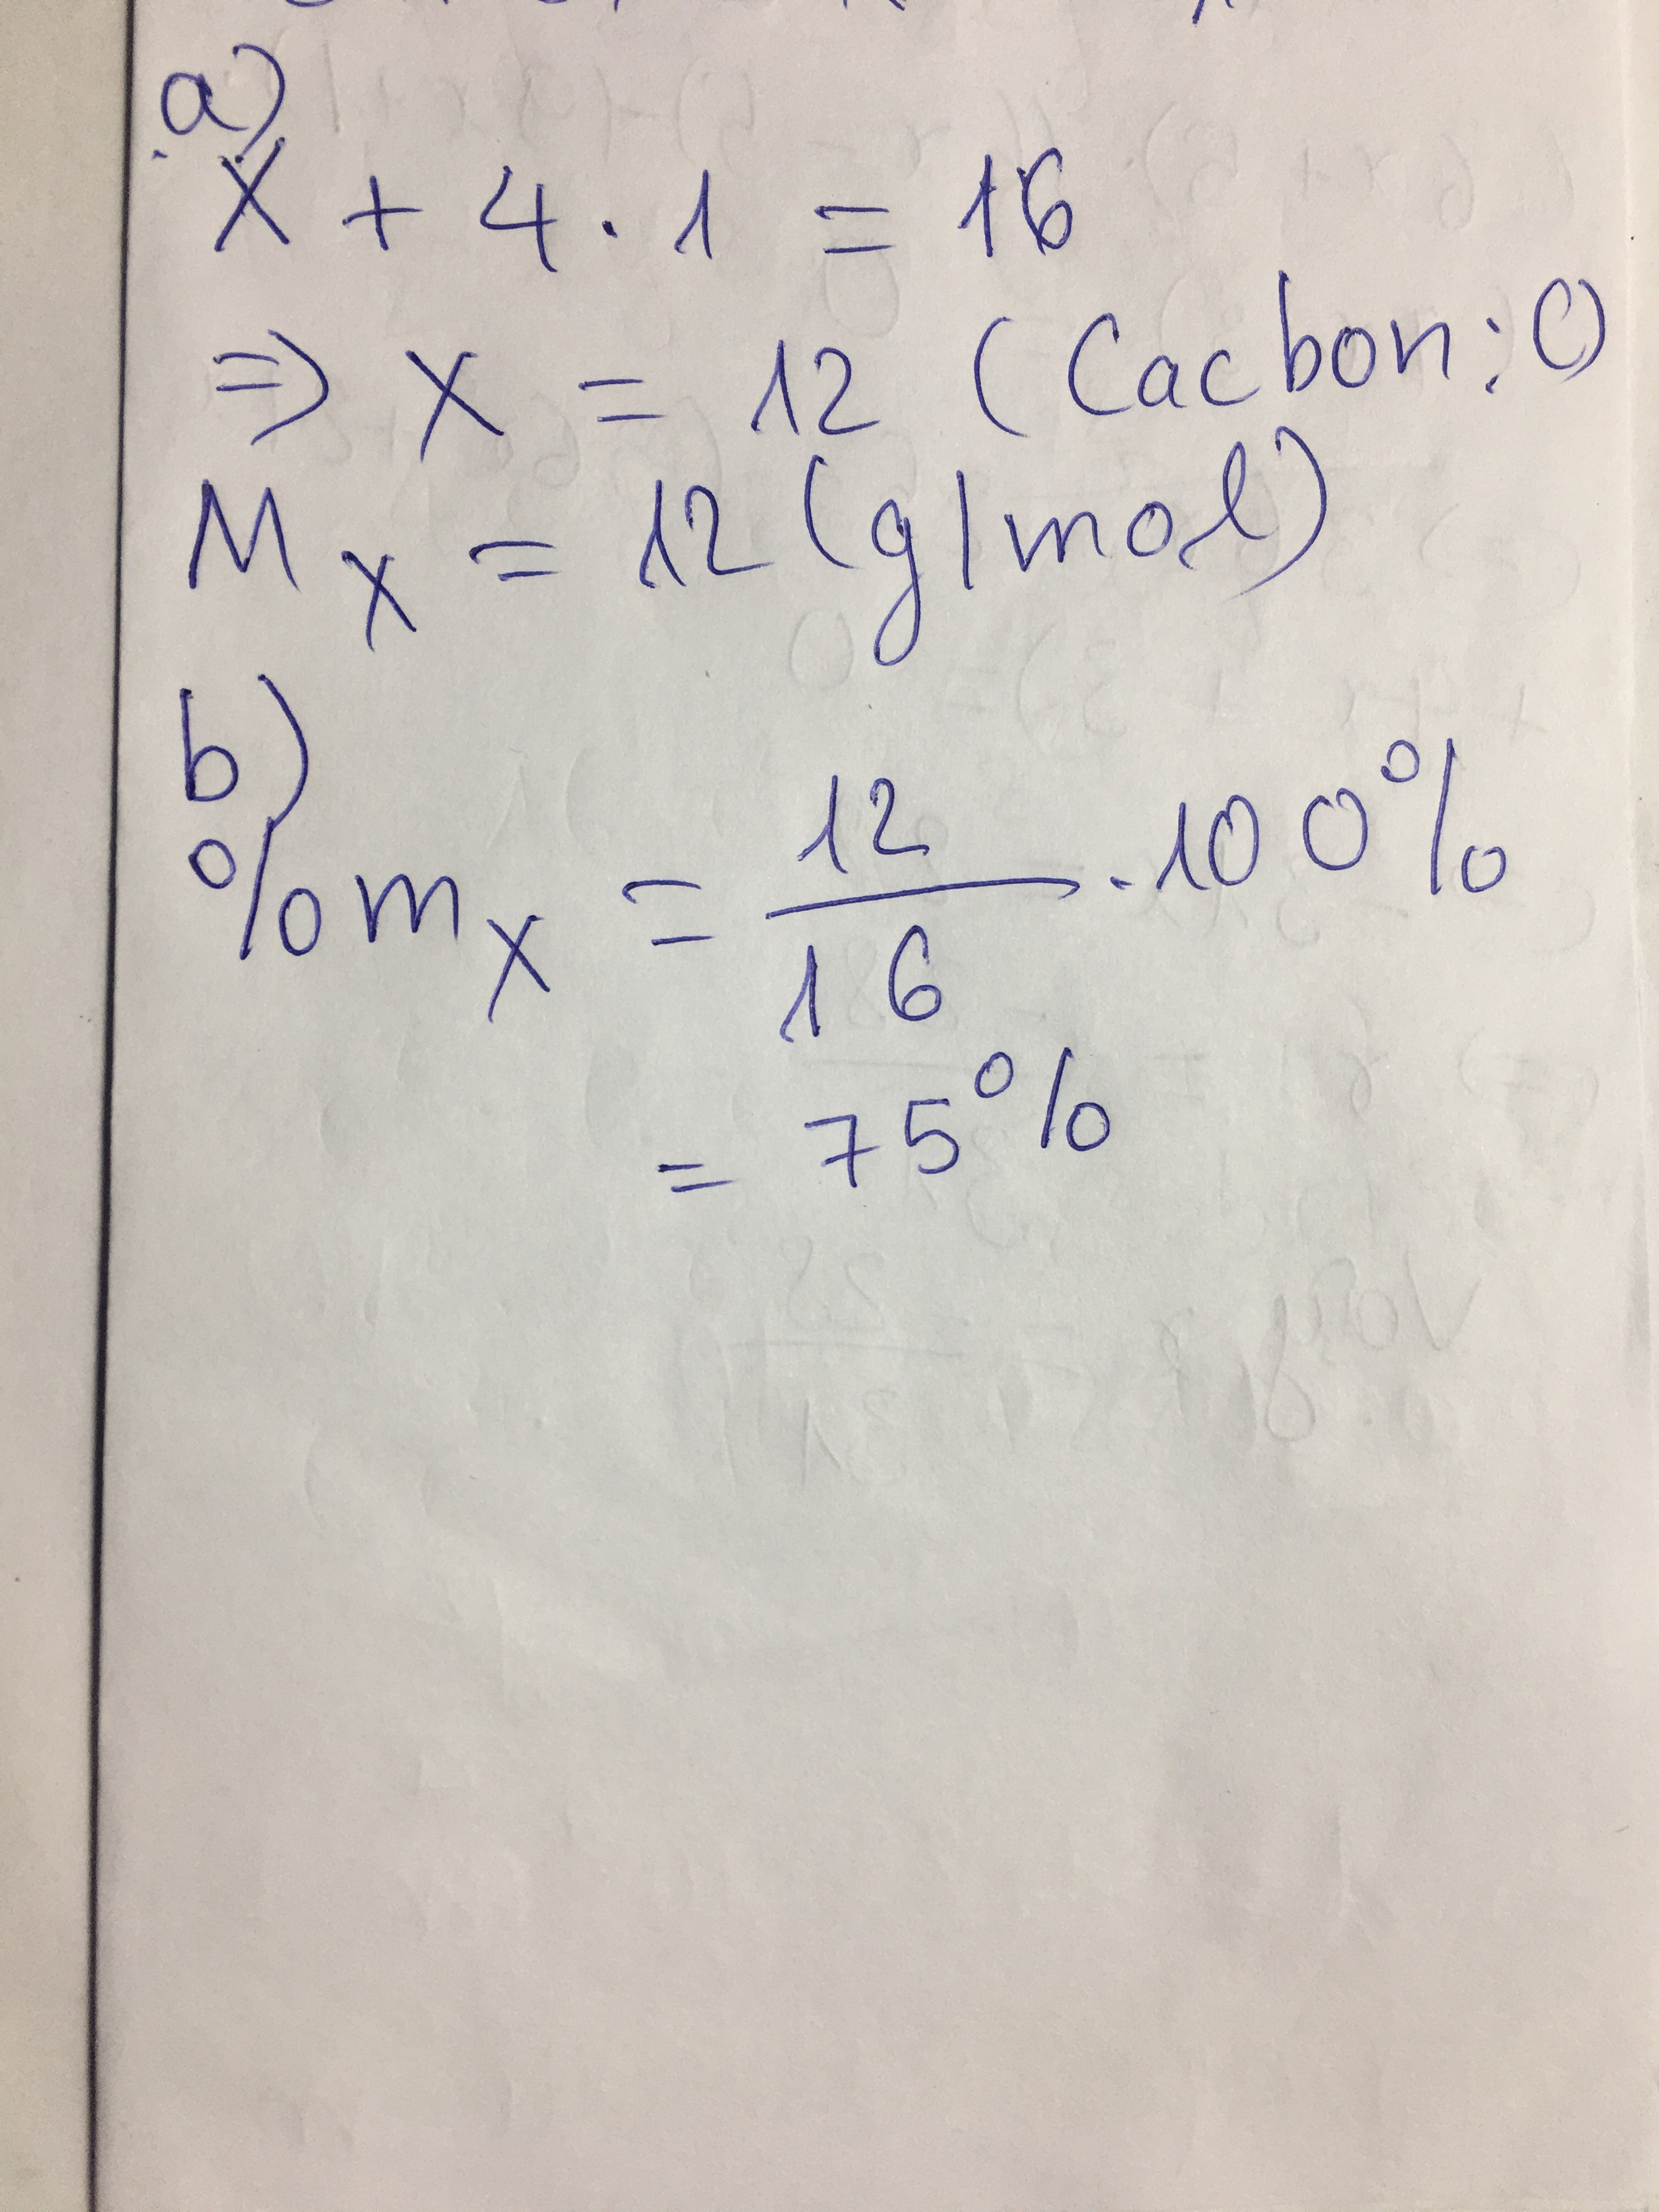 a)
X + 4 . 1 = 16
=> X = 12 (Cacbon: C)
M_X = 12 (g/mol)
b)
%m_X = 12/16 . 100%
= 75%